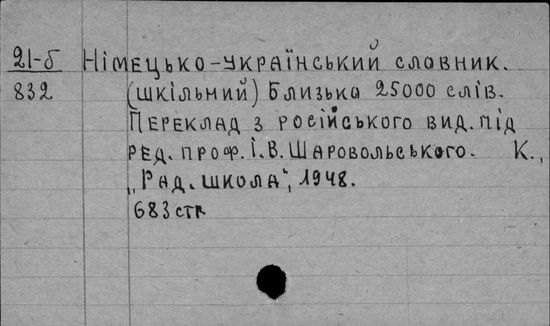 21-б Німецько-український словник.
832 (шкільний) Близька 25000 слів.
Переклад з російського вид. під
ред. проф. І.В. Шаровольського. К.,
„Рад. школа", 1948.
683 стр